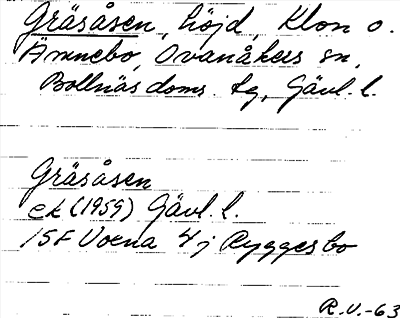 Gräsåsen, höjd, Klon o.
Ämnebo, Ovanåkers sn,
Bollnäs doms. tg, Gävl. l.
Gräsåsen
ek (1959) Gävl. l.
15F Voxna 4j Ryggesbo
R.U.-63